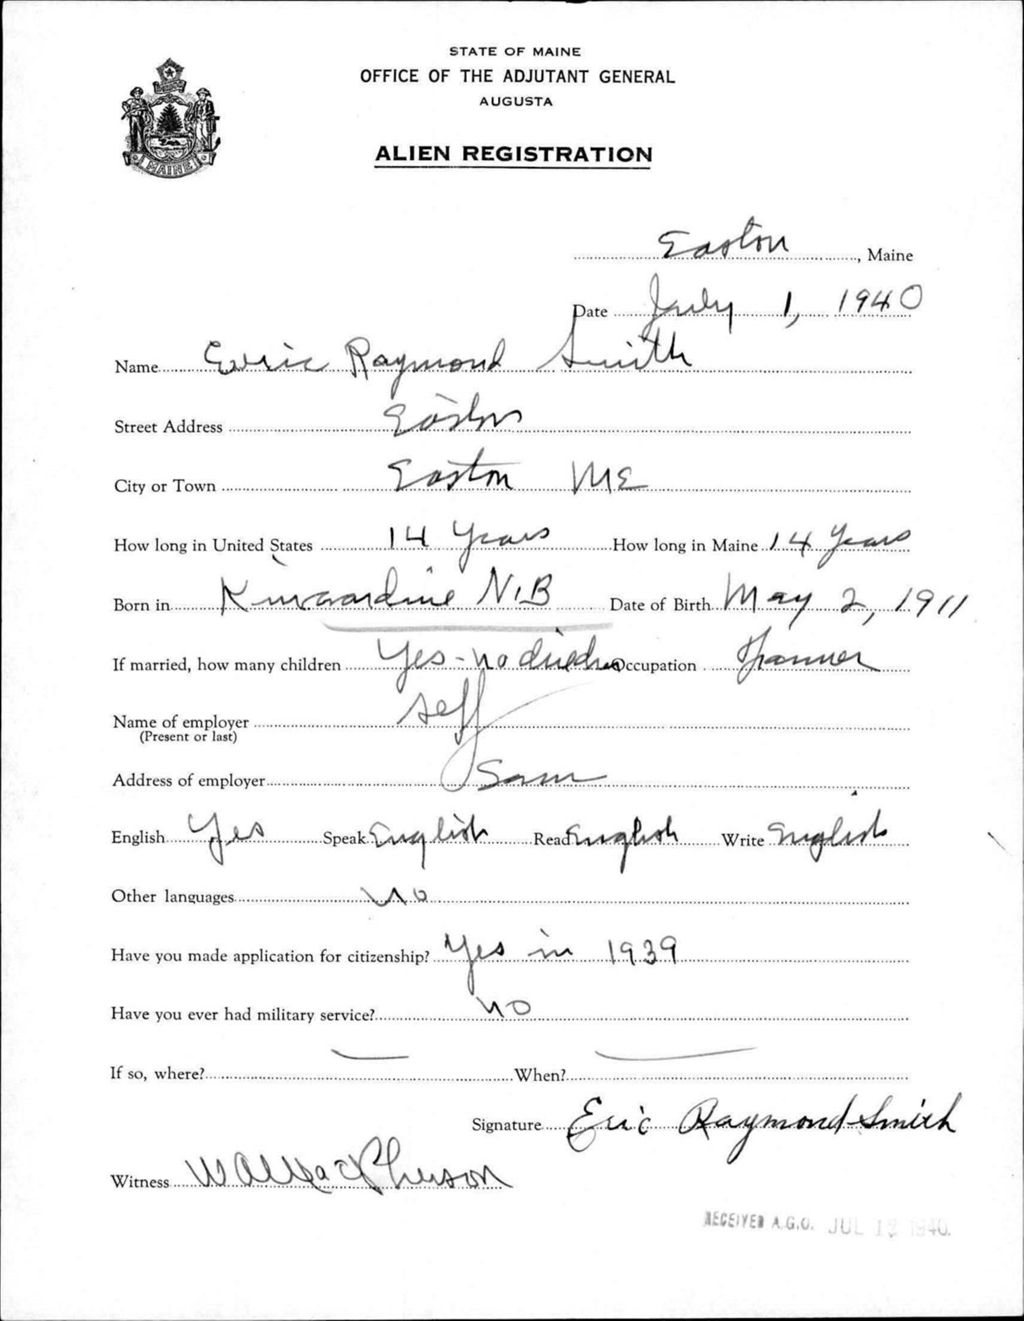 STATE OF MAINE
OFFICE OF THE ADJUTANT GENERAL
AUGUSTA
MAINE
ALIEN REGISTRATION
Easton, Maine
Date July 1, 1940
Name Raymond Smith
Street Address Easton
City or Town Easton ME
How long in United States 14 Years How long in Maine 14 Years
Born in N.B Date of Birth May 2, 1911
If married, how many children Yes - no Occupation Farmer
Name of employer self
(Present or last)
Address of employer Same
English Yes Speak English Read English Write English
Other languages No
Have you made application for citizenship? Yes in 1939
Have you ever had military service? no
If so, where? — When? —
Signature Eric Raymond Smith
Witness
RECEIVED A.G.O. JUL 12 1940.